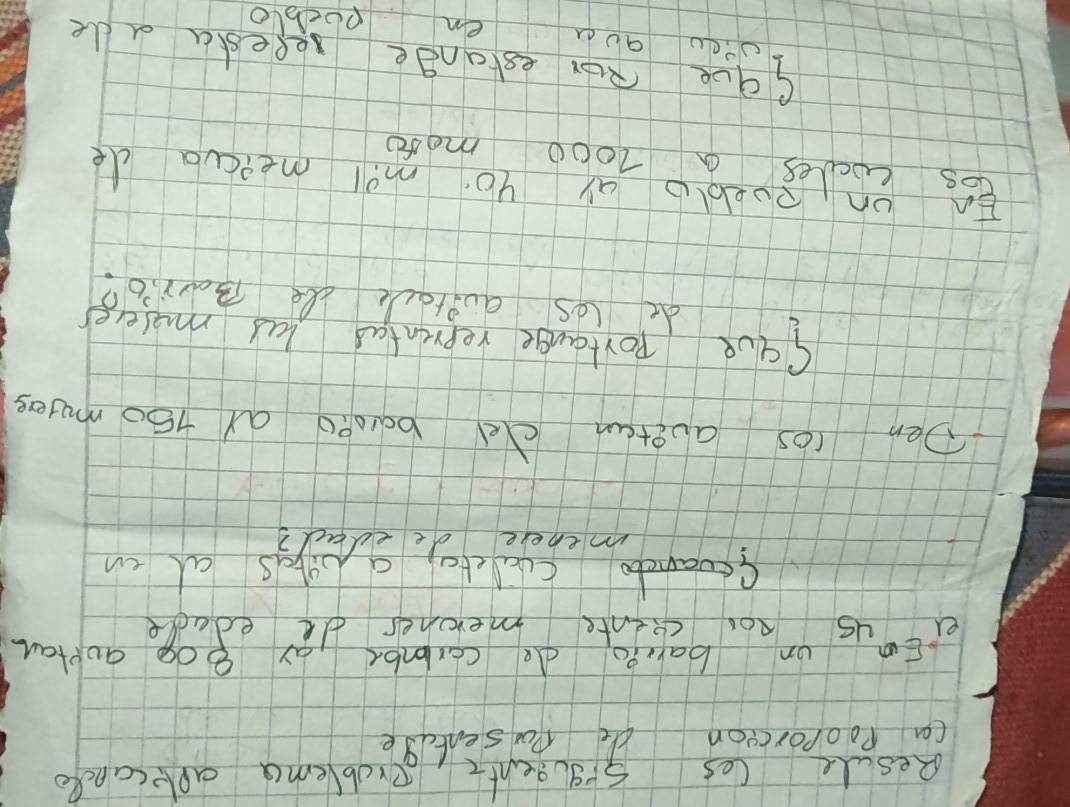 Resule los siguente Problema aplicando
la Pooporcion de Porsentage
En un barrio de colomba ay 800 avitan
el 45 Por ciente menores de edade
¿cuanda cualeta avitas al en
menere de edad?
Den los avitan del bario ay 150 mujeres
¿que portange reprentas las mujeres
de los avitade de Barrio?
En un Pueblo ay 40 mil meicva de
los cuales a 1000 maso
¿que Por estange represta a de
vicu qua en pueblo